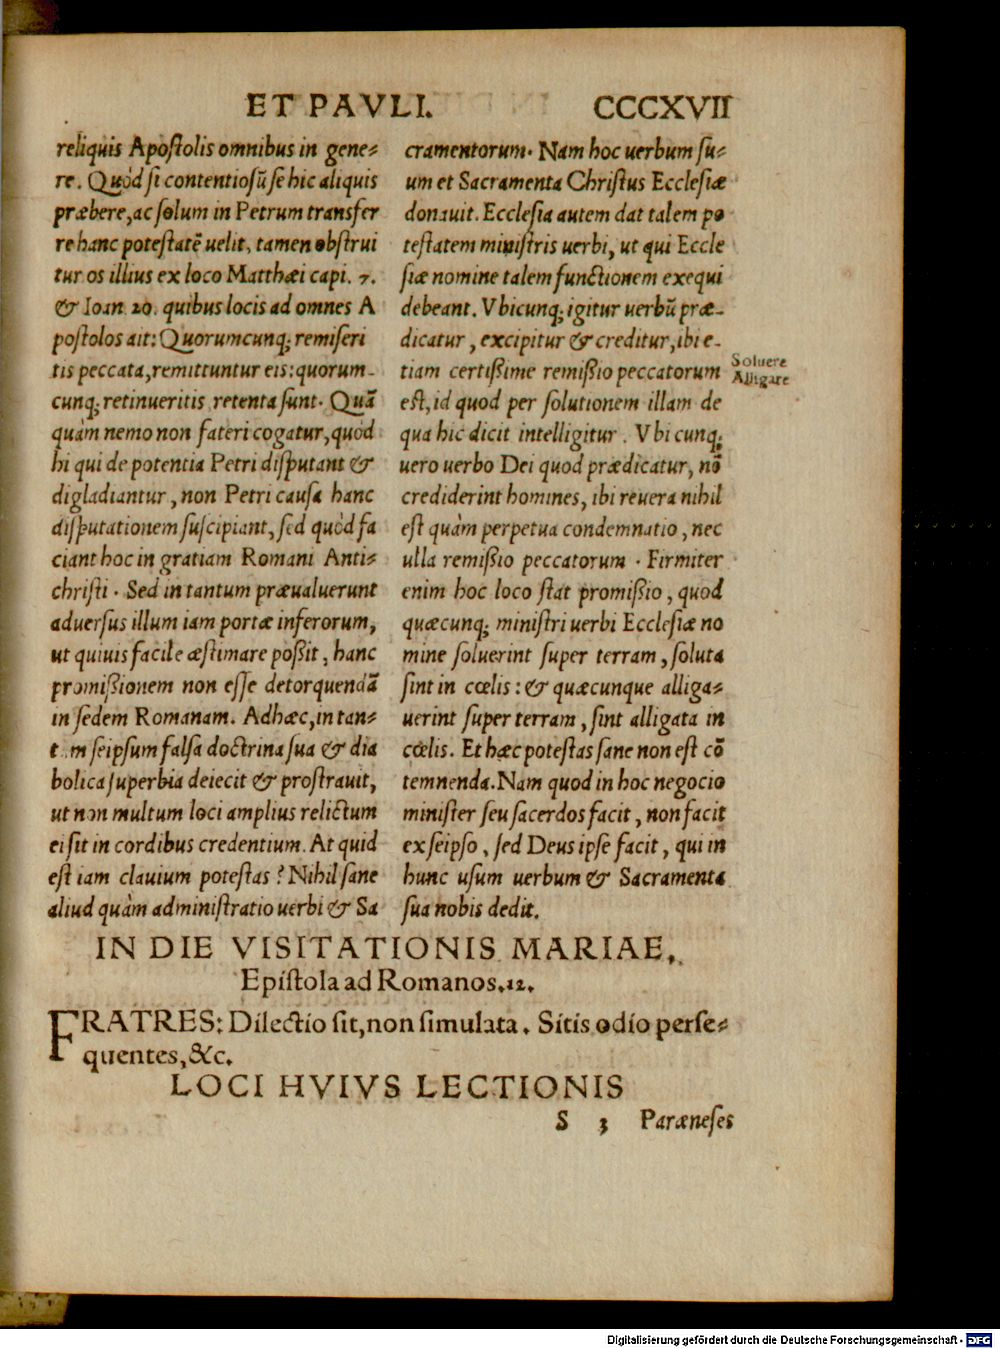 ET PAVLI.
CCCXVII
reliquis Apoſtolis omnibus in gene⸗
re. Quòd ſi contentioſũ ſe hic aliquis
præbere, ac ſolum in Petrum transfer
re hanc poteſtatẽ uelit, tamen obſtrui
tur os illius ex loco Matthæi capi. 7.
& Ioan 20. quibus locis ad omnes A
poſtolos ait: Quorumcunq; remiſeri
tis peccata, remittuntur eis: quorum-
cunq; retinueritis retenta ſunt. Quã
quàm nemo non fateri cogatur, quòd
hi qui de potentia Petri diſputant &
digladiantur, non Petri cauſa hanc
diſputationem ſuſcipiant, ſed quòd fa
ciant hoc in gratiam Romani Anti⸗
chriſti. Sed in tantum præualuerunt
aduerſus illum iam portæ inferorum,
ut quiuis facile æſtimare poßit, hanc
promißionem non eſſe detorquendã
in ſedem Romanam. Adhæc, in tan⸗
t m ſeipſum falſa doctrina ſua & dia
bolica ſuperbia deiecit & proſtrauit,
ut non multum loci amplius relictum
ei ſit in cordibus credentium. At quid
eſt iam clauium poteſtas? Nihil ſane
aliud quàm adminiſtratio uerbi & Sa
cramentorum. Nam hoc uerbum ſu⸗
um et Sacramenta Chriſtus Eccleſiæ
donauit. Eccleſia autem dat talem po
teſtatem miniſtris uerbi, ut qui Eccle
ſiæ nomine talem functionem exequi
debeant. Vbicunq; igitur uerbũ præ-
dicatur, excipitur & creditur, ibi e-
tiam certißime remißio peccatorum
eſt, id quod per ſolutionem illam de
qua hic dicit intelligitur. Vbi cunq;
uero uerbo Dei quod prædicatur, nõ
crediderint homines, ibi reuera nihil
eſt quàm perpetua condemnatio, nec
ulla remißio peccatorum. Firmiter
enim hoc loco ſtat promißio, quod
quæcunq; miniſtri uerbi Eccleſiæ no
mine ſoluerint ſuper terram, ſoluta
ſint in cœlis: & quæcunque alliga⸗
uerint ſuper terram, ſint alligata in
cœlis. Et hæc poteſtas ſane non eſt cõ
temnenda. Nam quod in hoc negocio
miniſter ſeu ſacerdos facit, non facit
ex ſeipſo, ſed Deus ipſe facit, qui in
hunc uſum uerbum & Sacramenta
ſua nobis dedit.
Soluere
Alligare
IN DIE VISITATIONIS MARIAE,
Epiſtola ad Romanos. 12.
FRATRES: Dilectio ſit, non ſimulata. Sitis odio perſe⸗
quentes, &c.
LOCI HVIVS LECTIONIS
S 3 Paræneſes
Digitalisierung gefördert durch die Deutsche Forschungsgemeinschaft - DFG